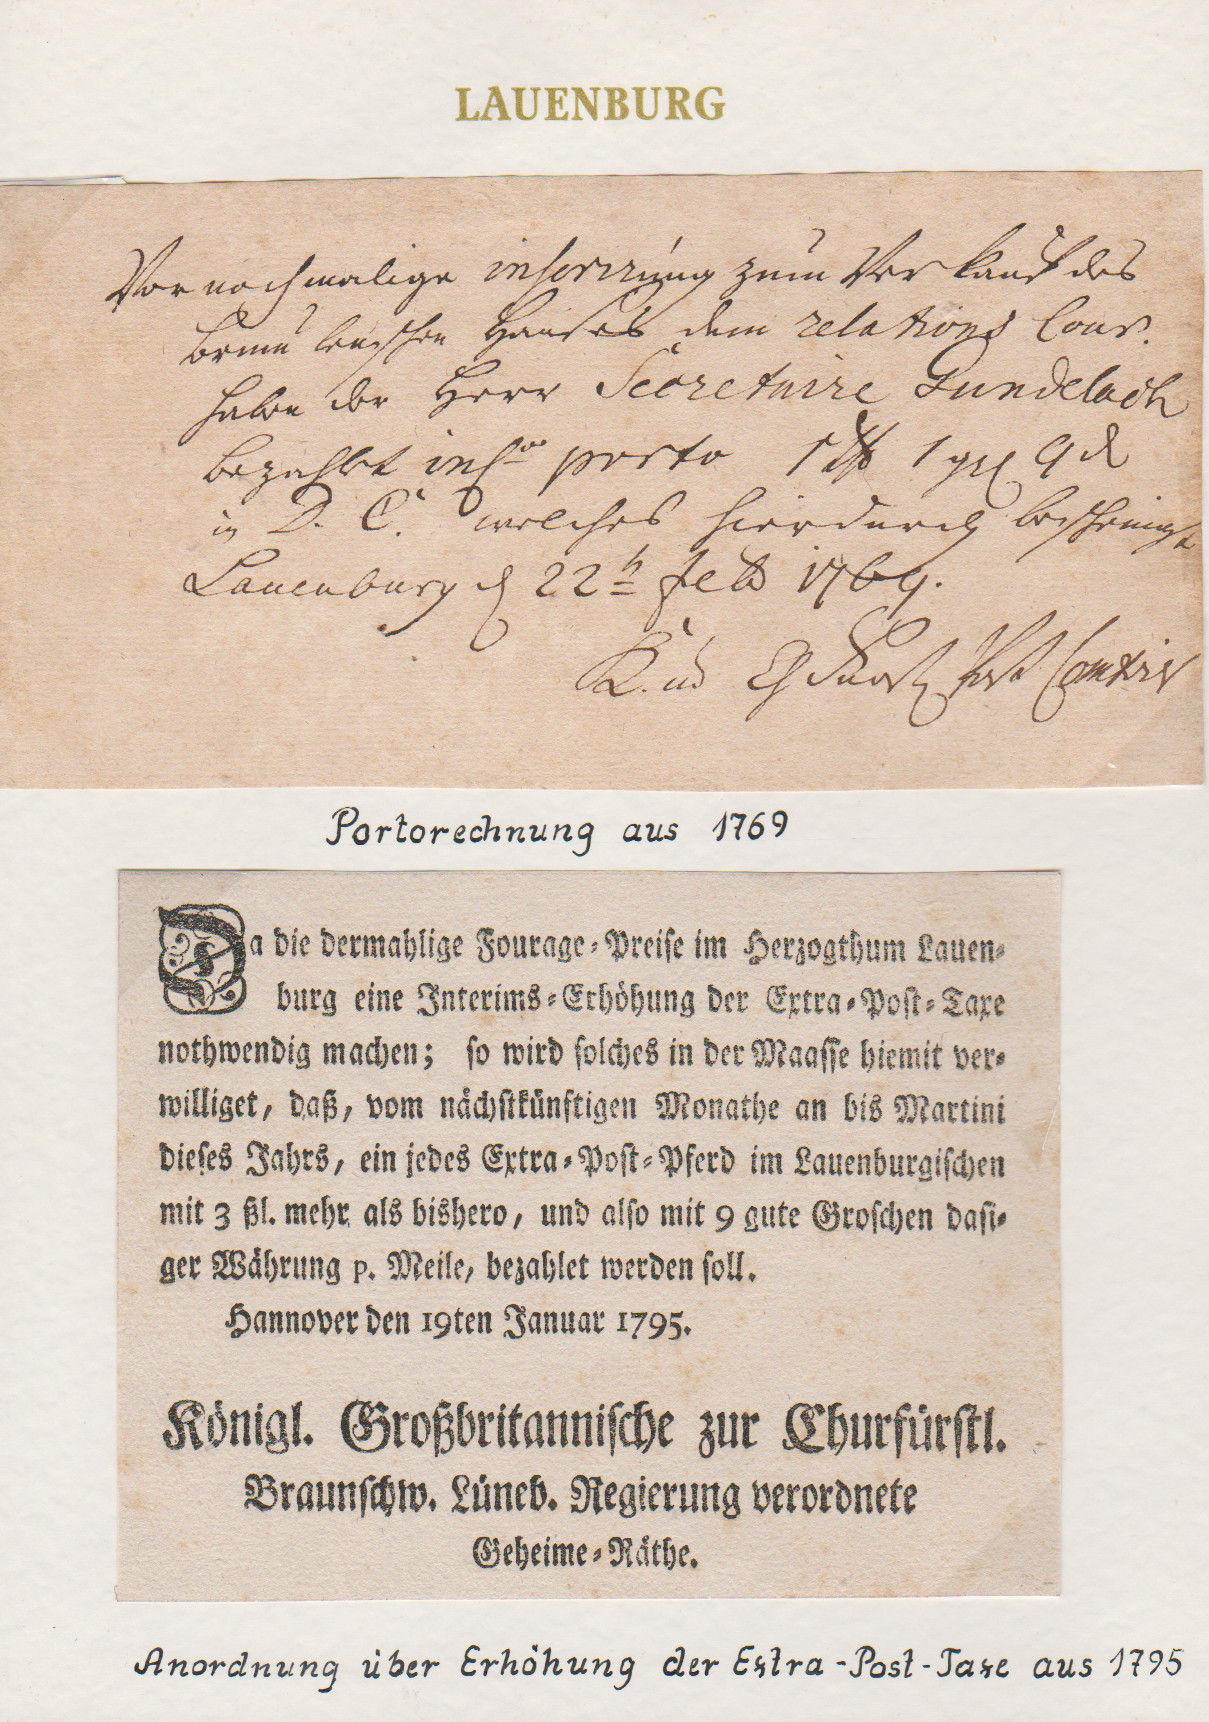 LAUENBURG
Vor nochmalige inserirung zum Verkauf des
Hauses dem relations Cour.
haben der Herr Secretaire Gundelach
bezahlt porto 1 9
in D. C. welches hierdurch bescheinigt
Lauenburg d 22 Feb 1769.
Post
Portorechnung aus 1769
Da die dermahlige Fourage-Preise im Herzogthum Lauen-
burg eine Interims-Erhöhung der Extra-Post-Taxe
nothwendig machen; so wird solches in der Maasse hiemit ver-
williget, daß, vom nächstkünftigen Monathe an bis Martini
dieses Jahrs, ein jedes Extra-Post-Pferd im Lauenburgischen
mit 3 ßl. mehr als bishero, und also mit 9 gute Groschen dasi-
ger Währung p. Meile, bezahlet werden soll.
Hannover den 19ten Januar 1795.
Königl. Großbritannische zur Churfürstl.
Braunschw. Lüneb. Regierung verordnete
Geheime-Räthe.
Anordnung über Erhöhung der Extra-Post-Taxe aus 1795